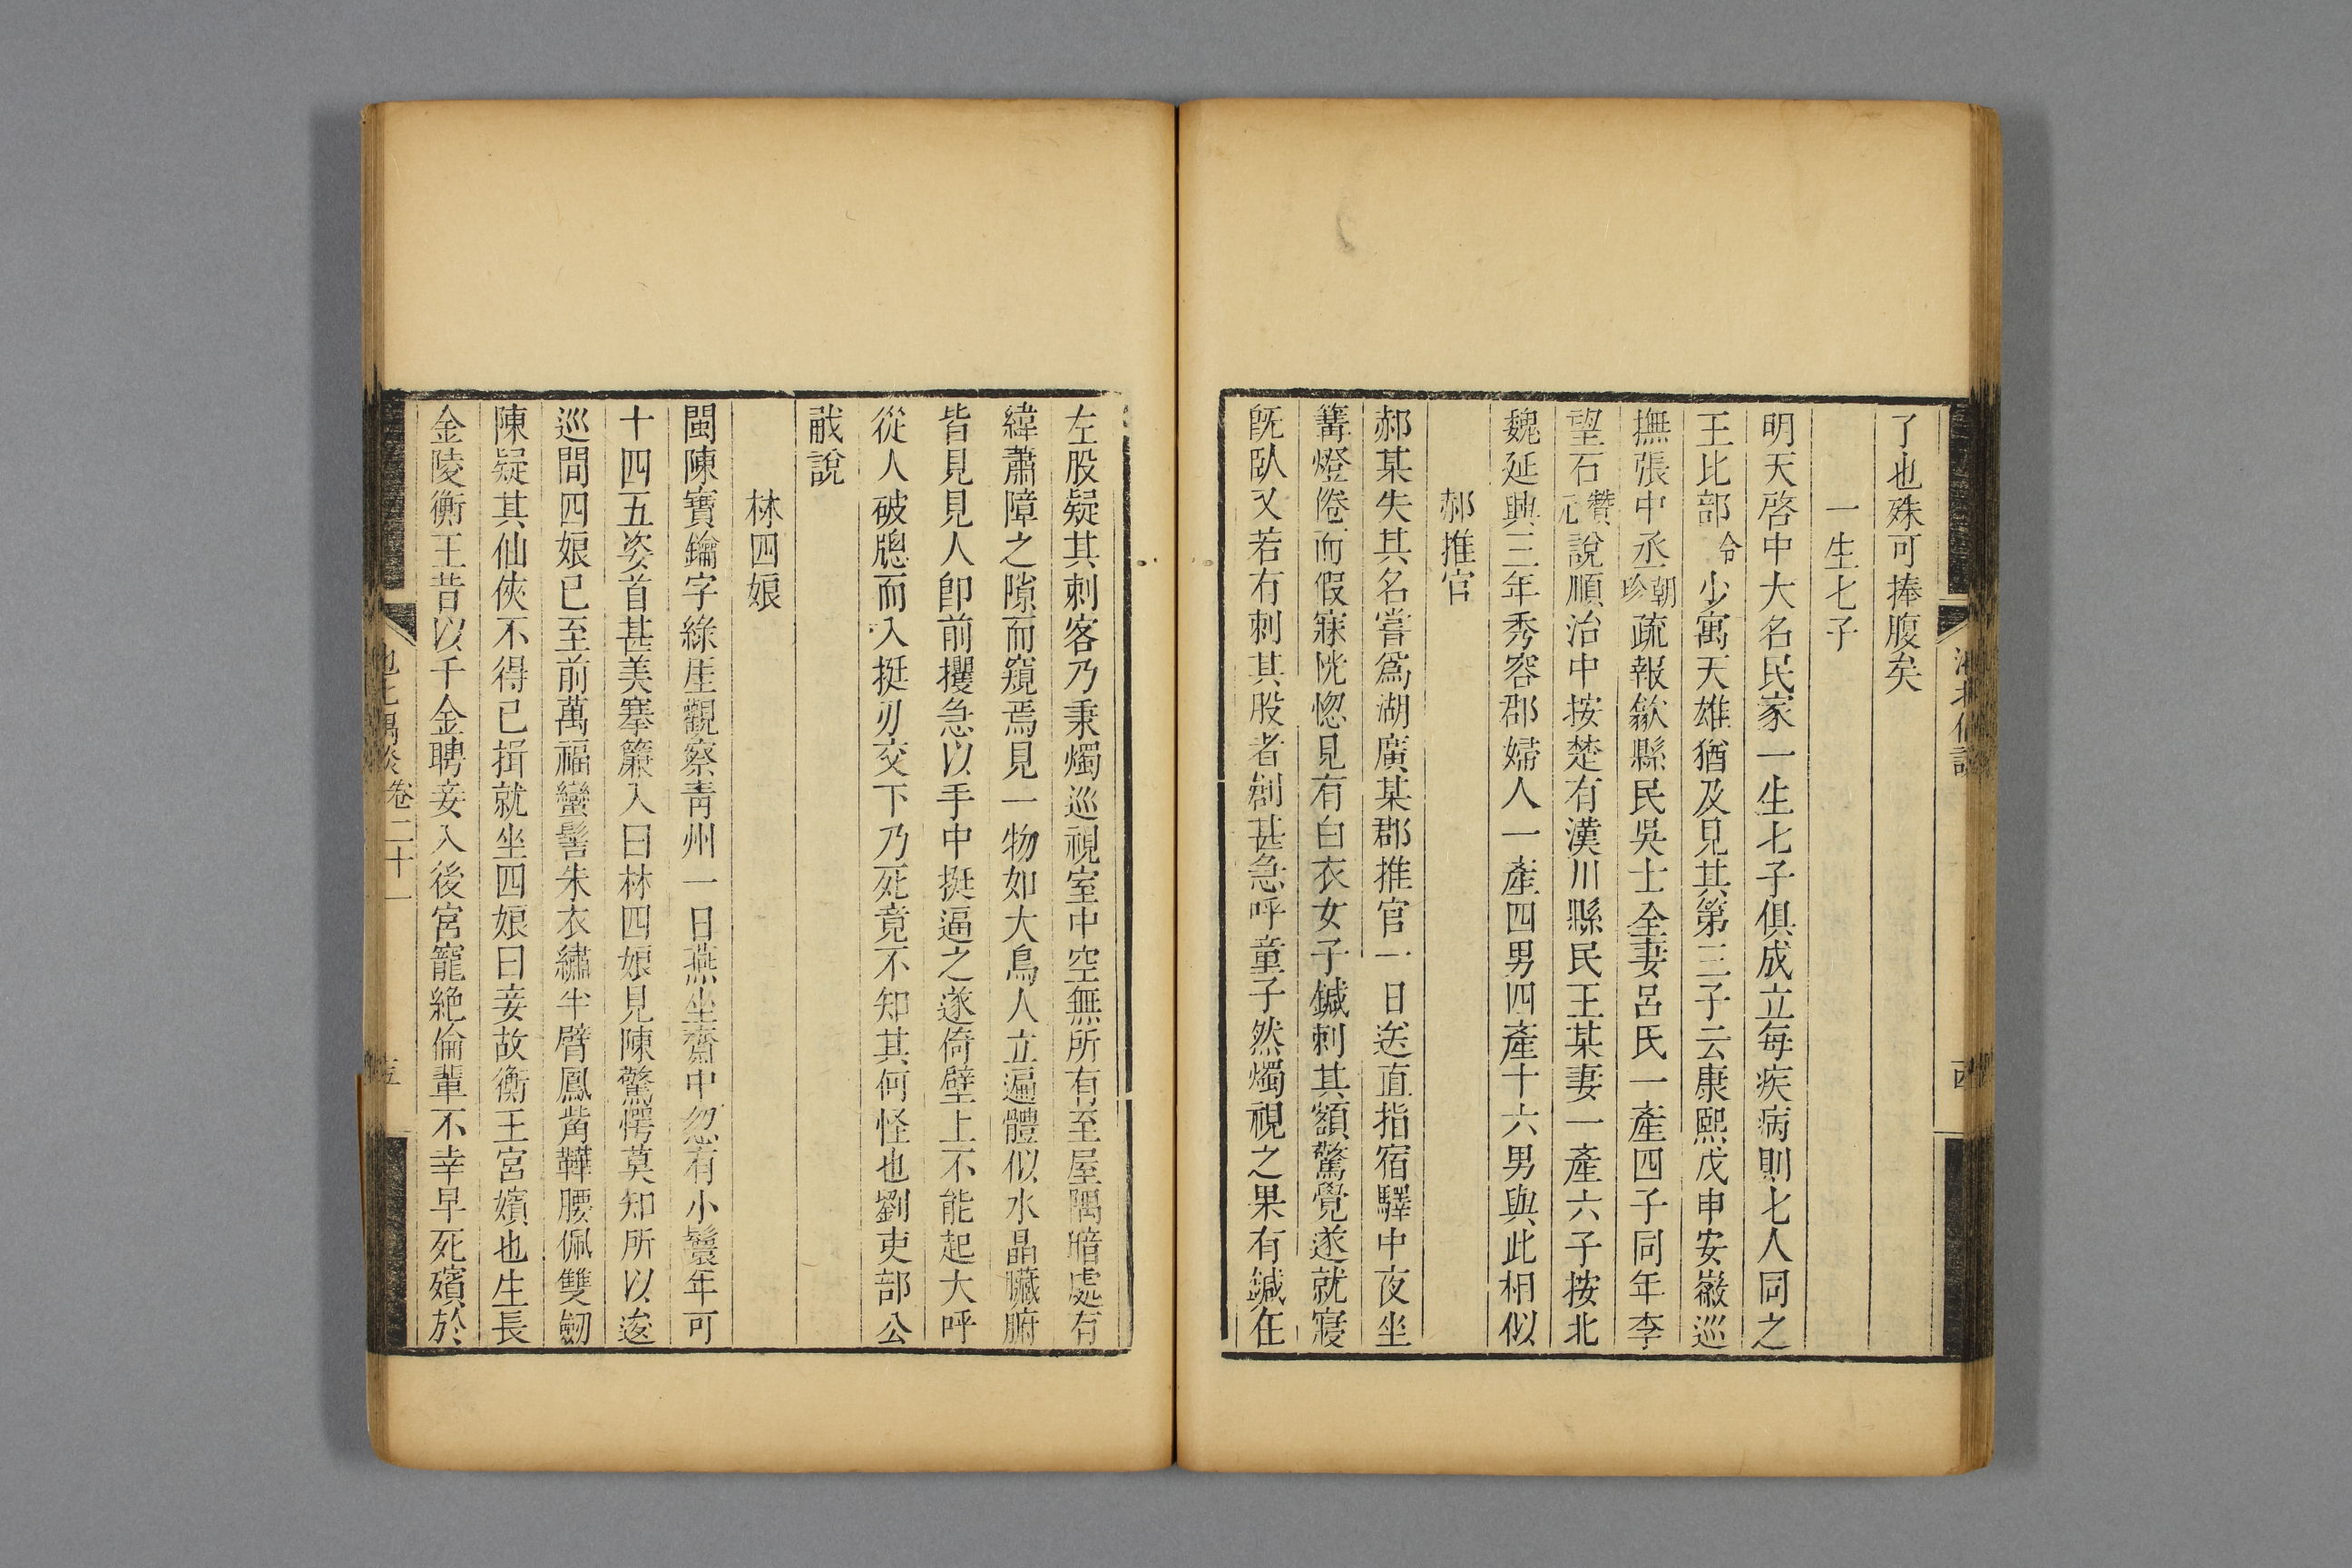 了也殊可捧腹矣
一生七子
明天啓中大名民家一生七子俱成立每疾病則七人同之
王比部令少寓天雄猶及見其第三子云康熙戊申安徽巡
撫張中丞朝珍疏報歙縣民吳士全妻呂氏一產四子同年李
望石贊元說順治中按楚有漢川縣民王某妻一產六子按北
魏延興三年秀容郡婦人一產四男四產十六男與此相似
郝推官
郝某失其名嘗爲湖廣某郡推官一日送直指宿驛中夜坐
篝燈倦而假寐恍惚見有白衣女子鍼刺其額驚覺遂就寢
旣臥又若有刺其股者創甚急呼童子然燭視之果有鍼在
左股疑其刺客乃秉燭巡視室中空無所有至屋隅暗處有
緯蕭障之隙而窺焉見一物如大鳥人立遍體似水晶臟腑
皆見見人卽前攫急以手中挺逼之遂倚壁上不能起大呼
從人破牕而入挺刃交下乃死竟不知其何怪也劉吏部公
㦸說
林四娘
閩陳寶鑰字綠厓觀察青州一日燕坐齋中忽有小鬟年可
十四五姿首甚美搴簾入曰林四娘見陳驚愕莫知所以逡
巡間四娘已至前萬福蠻髻朱衣繡半臂鳳觜鞾腰佩雙劒
陳疑其仙俠不得已揖就坐四娘曰妾故衡王宮嬪也生長
金陵衡王昔以千金聘妾入後宮寵絶倫輩不幸早死殯於
池北偶談 卷二十一